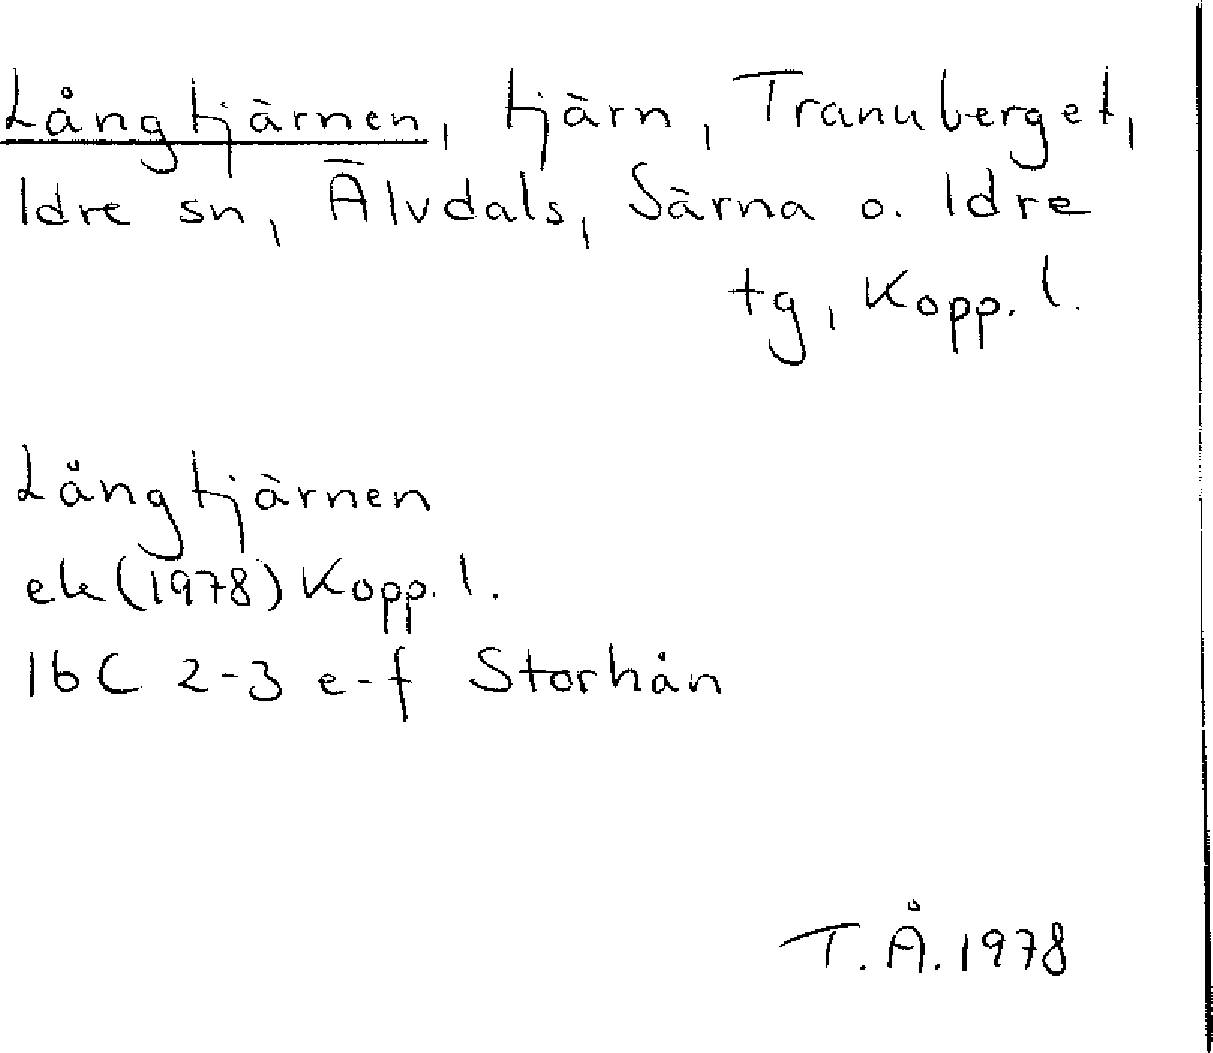 Långtjärnen, tjärn, Tranuberget,
Idre sn, Älvdals, Särna o. Idre
tg, Kopp. l.
Långtjärnen
ek (1978) Kopp. l.
16C 2-3 e-f Storhån
T.Å. 1978